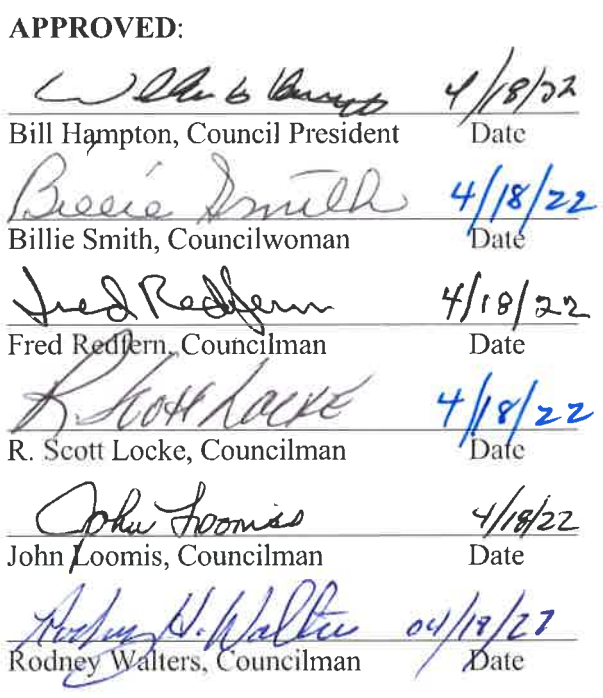 APPROVED:
4/18/22
Bill Hampton, Council President Date
Billie Smith 4/18/22
Billie Smith, Councilwoman Date
Fred Redfern 4/18/22
Fred Redfern, Councilman Date
R. Scott Locke 4/18/22
R. Scott Locke, Councilman Date
John Loomis 4/18/22
John Loomis, Councilman Date
Rodney H. Walters 04/18/22
Rodney Walters, Councilman Date